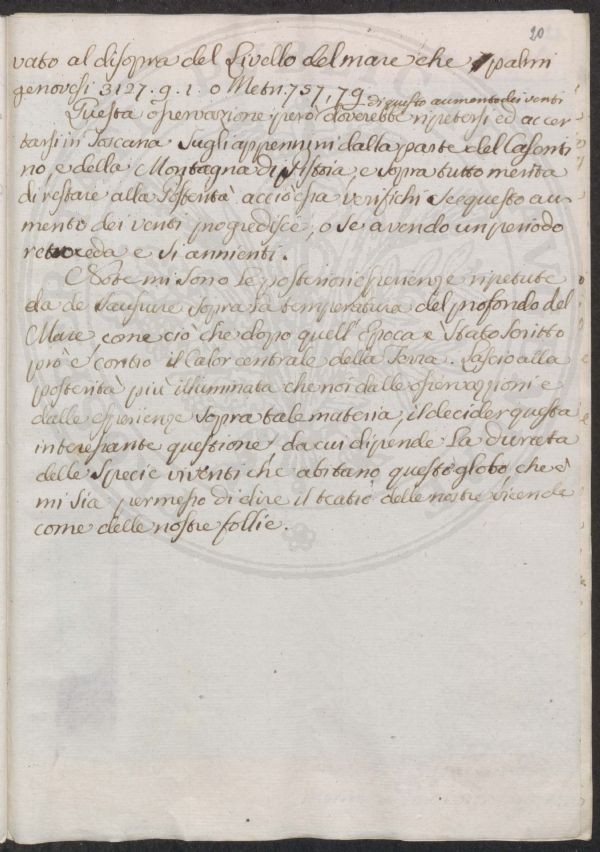 20
vato al disopra del Livello del mare che palmi
genovesi 3127. 9. 1. o Metri 757, 79
di questo aumento dei venti
Questa osservazione però doverebbe ripetersi ed accer
tarsi in Toscana sugli appennini dalla parte del Casenti
no, e della Montagna di Pistoia, e sopra tutto merita
di restare alla Posterità acciò essa verifichi se questo au-
mento dei venti progredisce, o se avendo un periodo
retroceda e si annienti.
Note mi sono le posteriori esperienze ripetute
da de Saussure sopra la temperatura del profondo del
Mare, come ciò che dopo quell' Epoca è stato scritto
prò e contro il Calor centrale della Terra. Lascio alla
posterità più illuminata che noi dalle osservazioni e
dalle esperienze sopra tale materia, il decider questa
interessante questione, da cui dipende la durata
delle specie viventi che abitano questo globo che è
mi sia permesso di dire il teatro delle nostre vicende
come delle nostre follie.